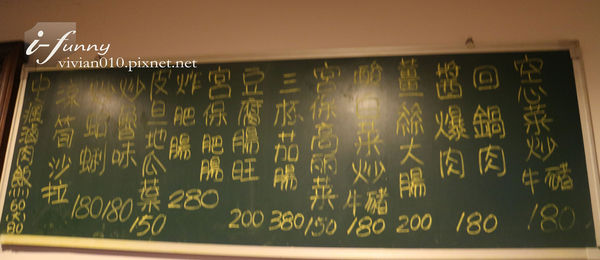 i-funny
vivian010.pixnet.net
空心菜炒豬牛 180
回鍋肉
醬爆肉 180
薑絲大腸 200
酸菜炒豬牛 180
宮保高麗菜 150
三杯茄腸 380
豆腐腸旺 200
宮保肥腸
炸肥腸 280
皮旦地瓜葉 150
炒臘味 180
炒蛤蜊 180
筍沙拉